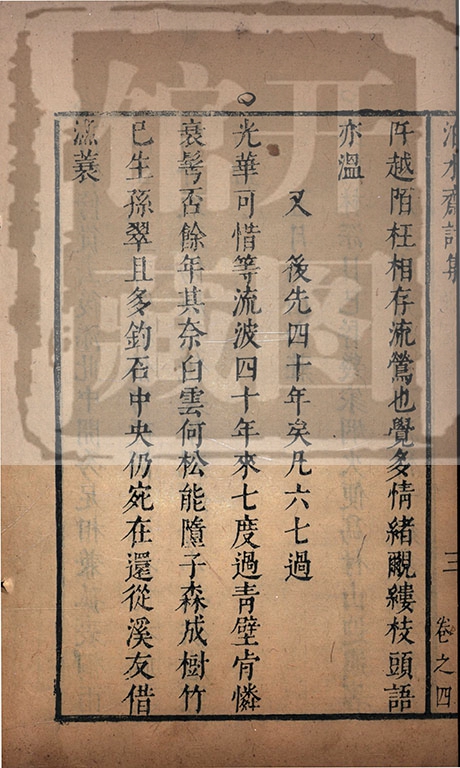 阡越陌枉相存流鶯也覺多情緒覼縷枝頭語
亦溫
又 後先四十年矣凡六七過
光華可惜等流波四十年來七度過青壁肯憐
衰髩否餘年其奈白雲何松能隨子森成樹竹
已生孫翠且多釣石中央仍宛在還從溪友借
漁蓑
三
卷之四